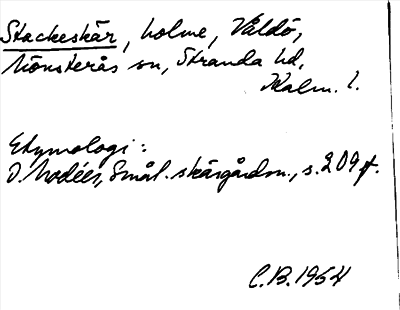 Stackeskär, holme, Våldö,
Mönsterås sn, Stranda hd,
Kalm. l.
Etymologi:
O. Modéer, Smål. skärgårdsn., s. 209 f.
C.B. 1954